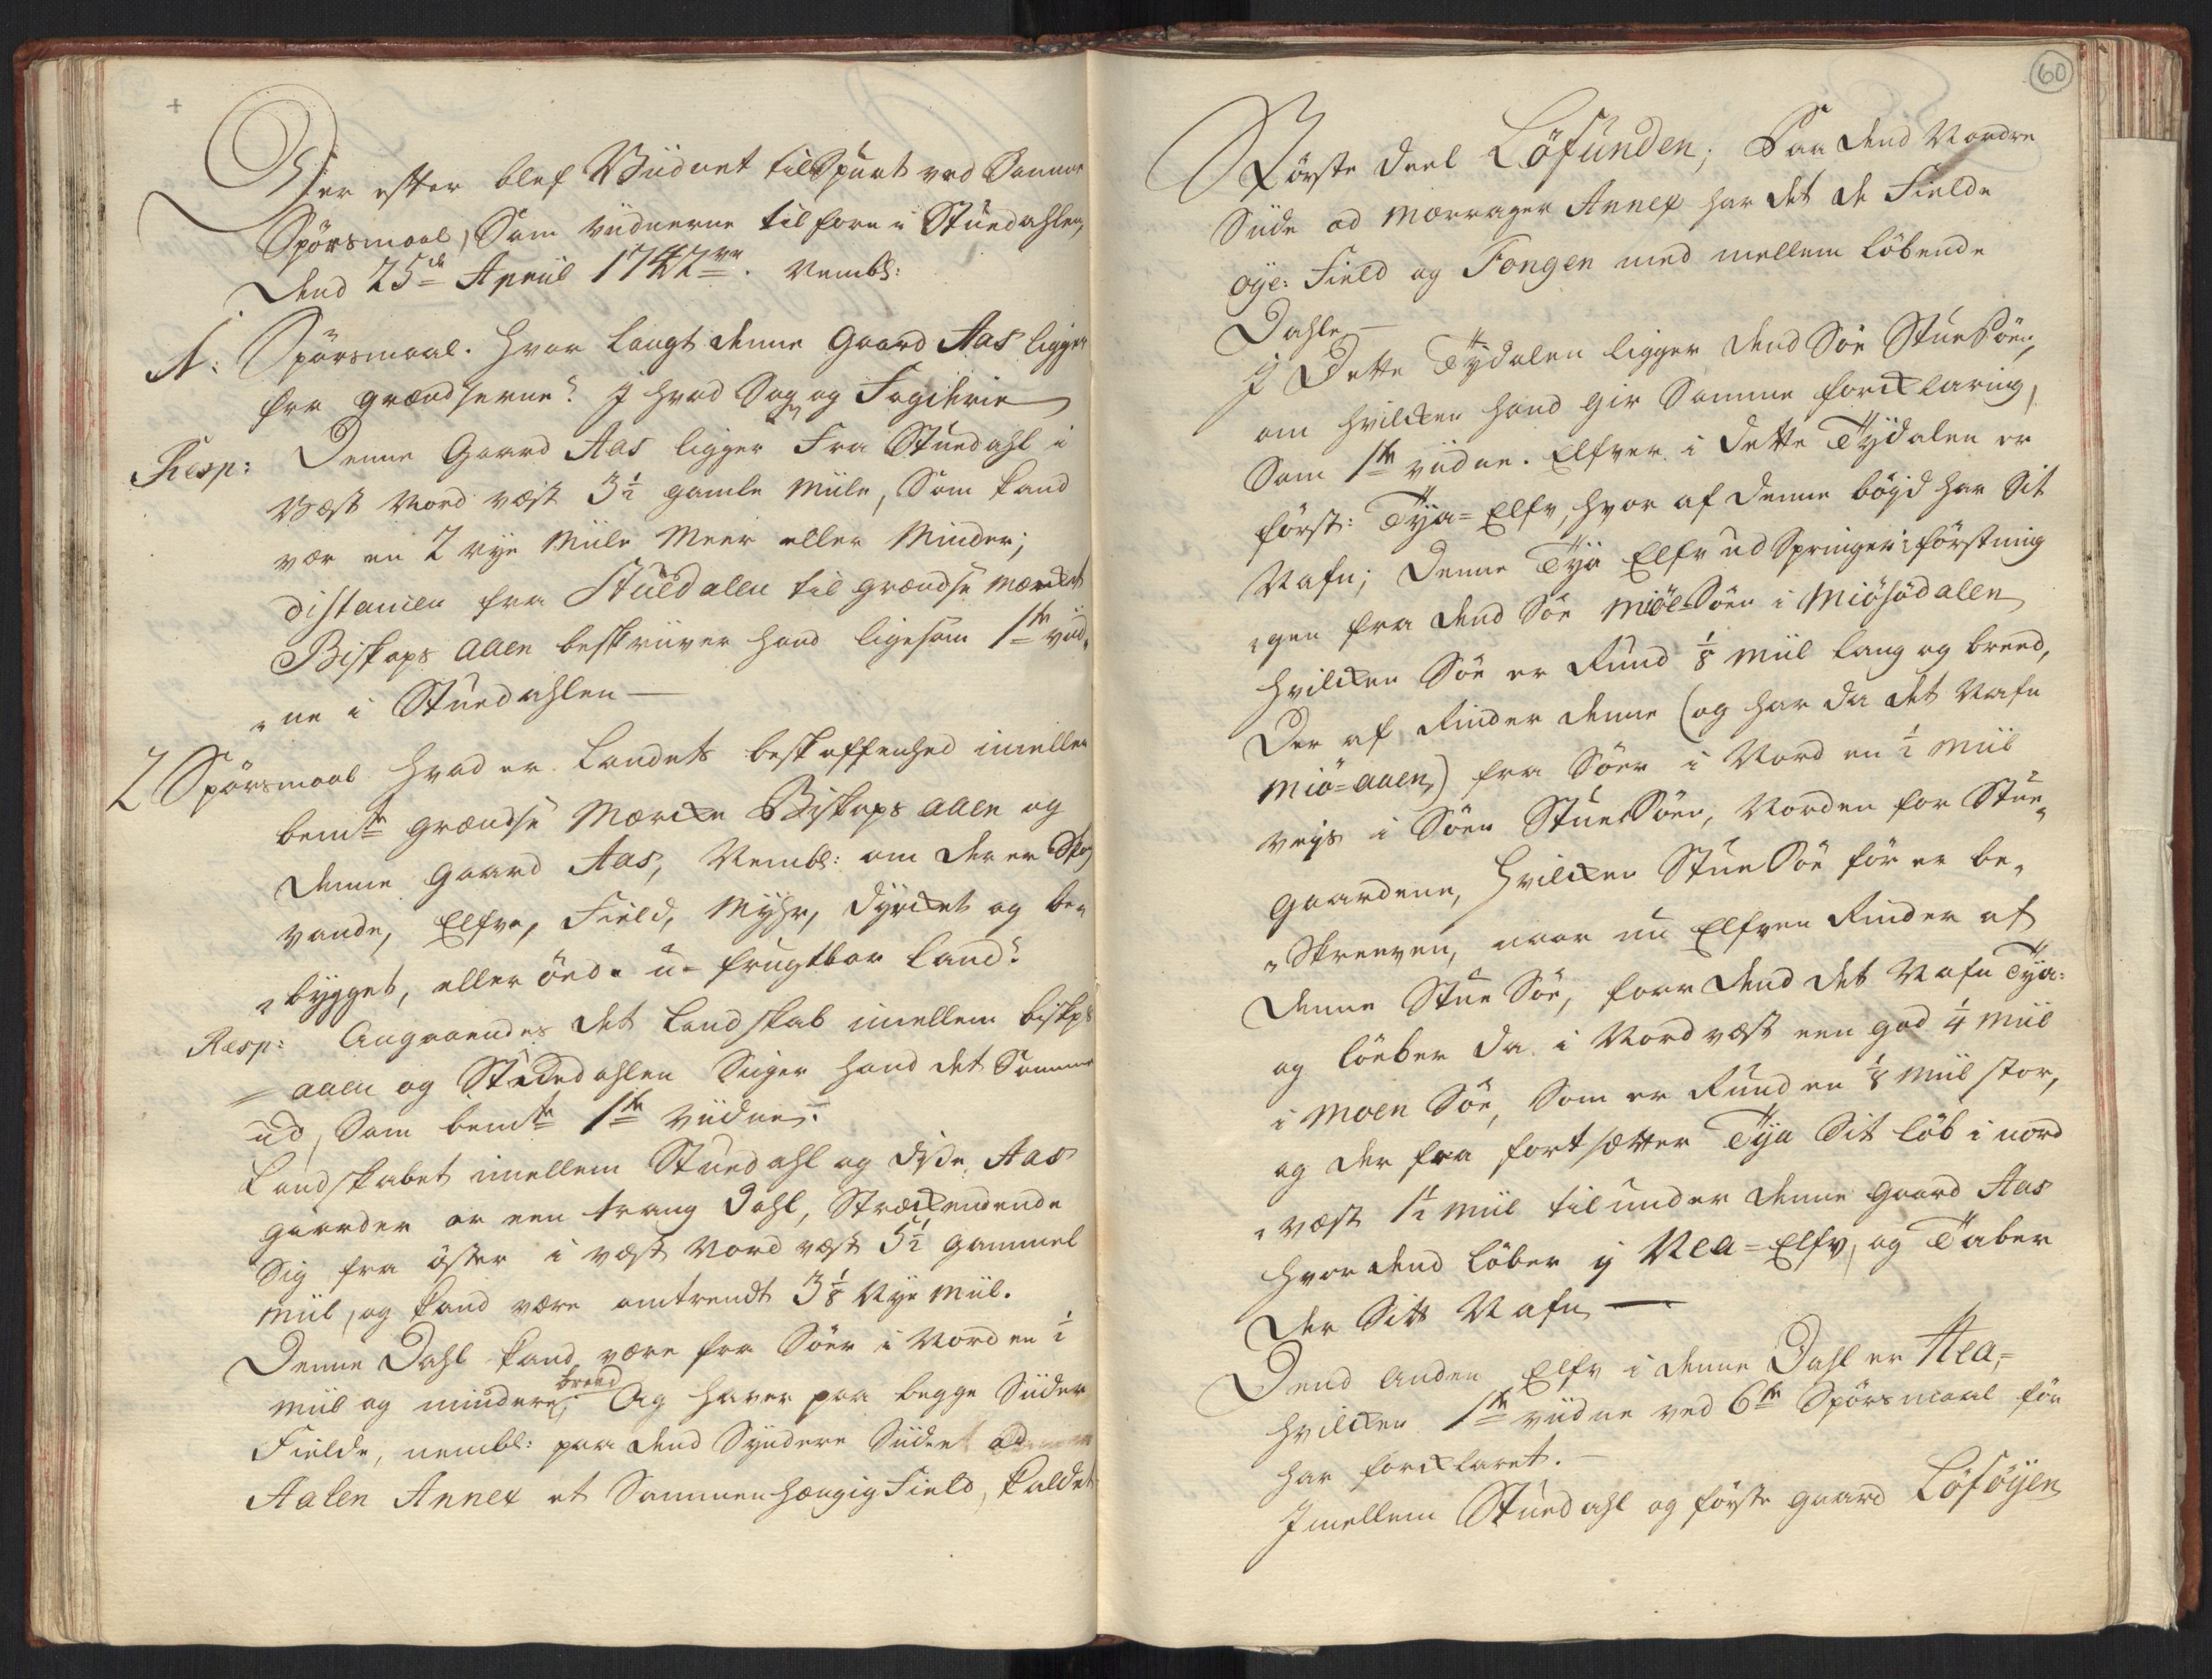 +
Her efter blef Viidnet tilspurt ved Samme
Spörsmaal, Som viidnerne tilforn i Stüedahlen,
Dend 25de Apriil 1742ve. Nembl:
1: Spörsmaal. Hvor langt denne Gaard Aas ligger
fra grændserne? J hvad Sogn og Fogderie
Resp: Denne Gaard Aas ligger Fra Stüedahl i
Væst Nord væst 3½ gamle Miile, Som kand
vær en 2 nye Miile Meer eller Minder;
distancen fra Stüedalen til grændse mærcket
Biskops Aaen beskriiver hand ligesom 1te viid„
„ne i Stüedahlen —
2 Spörsmaal Hvad er Landets beskaffenhed imellem
bemte grændse Mærcke Biskops Aaen og
denne gaard Aas, Nembl: om der er Skov
vande, Elfve, Field, Myhr, dyrcket og be„
„bygget, eller öed- u-frugtbar Land?
Resp: Angaaendes det Landskab imellem biskops
= aaen og Stüedahlen Siiger hand det Samme
ud, Som bemte 1te Viidne.
Landskabet imellem Stüedahl og disse Aas
gaarder er een trang Dahl, Stræckendende
Sig fra öster i væst Nord væst 5½ gammel
Miil, og kand være omtrendt 3⅛ Nye Miil.
Denne Dahl kand være fra Söer i Nord en ½
Miil og mindere breed, Og haver paa begge Siider
Fielde, nembl: paa dend Syndere Siide ad
Aalen Annex et Sammenhængig Field, kaldet
60
Förste deel Löfünden; Paa dend Nordre
Siide ad Merrager Annex har det de Fielde
öye: Field og Fongen med mellem löbende
Dahle —
J Dette Tydalen ligger dend Söe StueSöen,
om hvilcken hand gir Samme forcklaring,
Som 1te viidne. Elfver i dette Tÿdalen er
först: Tÿa=Elfv, hvor af denne böÿd har Sit
Nafn; Denne Tÿa Elfv ud Springer i förstning
„gen fra dend Söe MiöeSöen i Miösödalen
hvilcken Söe er Rund ⅛ Miil lang og breed,
Der af Rinder denne (og har da det Nafn
Miö=aaen,) fra Söer i Nord en ½ Miil
veÿs i Söen StueSöen, Norden for Stue„
gaardene, hvilcken StueSöe för er be„
„Skreeven, naar nu Elfven Rinder af
denne Stue Söe, faar dend det Nafn Tÿa:
og löeber da i Nord væst een god ¼ Miil
i Moen Söe, Som er Rund en ⅛ Miil stor,
og der fra fortsætter Tÿa Sit löb i nord
„væst 1½ Miil til under denne gaard Aas
hvor dend löber i Nea=Elfv, og Taber
der Sitt Nafn —
Dend anden Elfv i denne Dahl er Nea,=
hvilcken 1te viidne ved 6te Spörsmaal för
har forcklaret. —
Jmellem Stuedahl og förste gaard Löföÿen